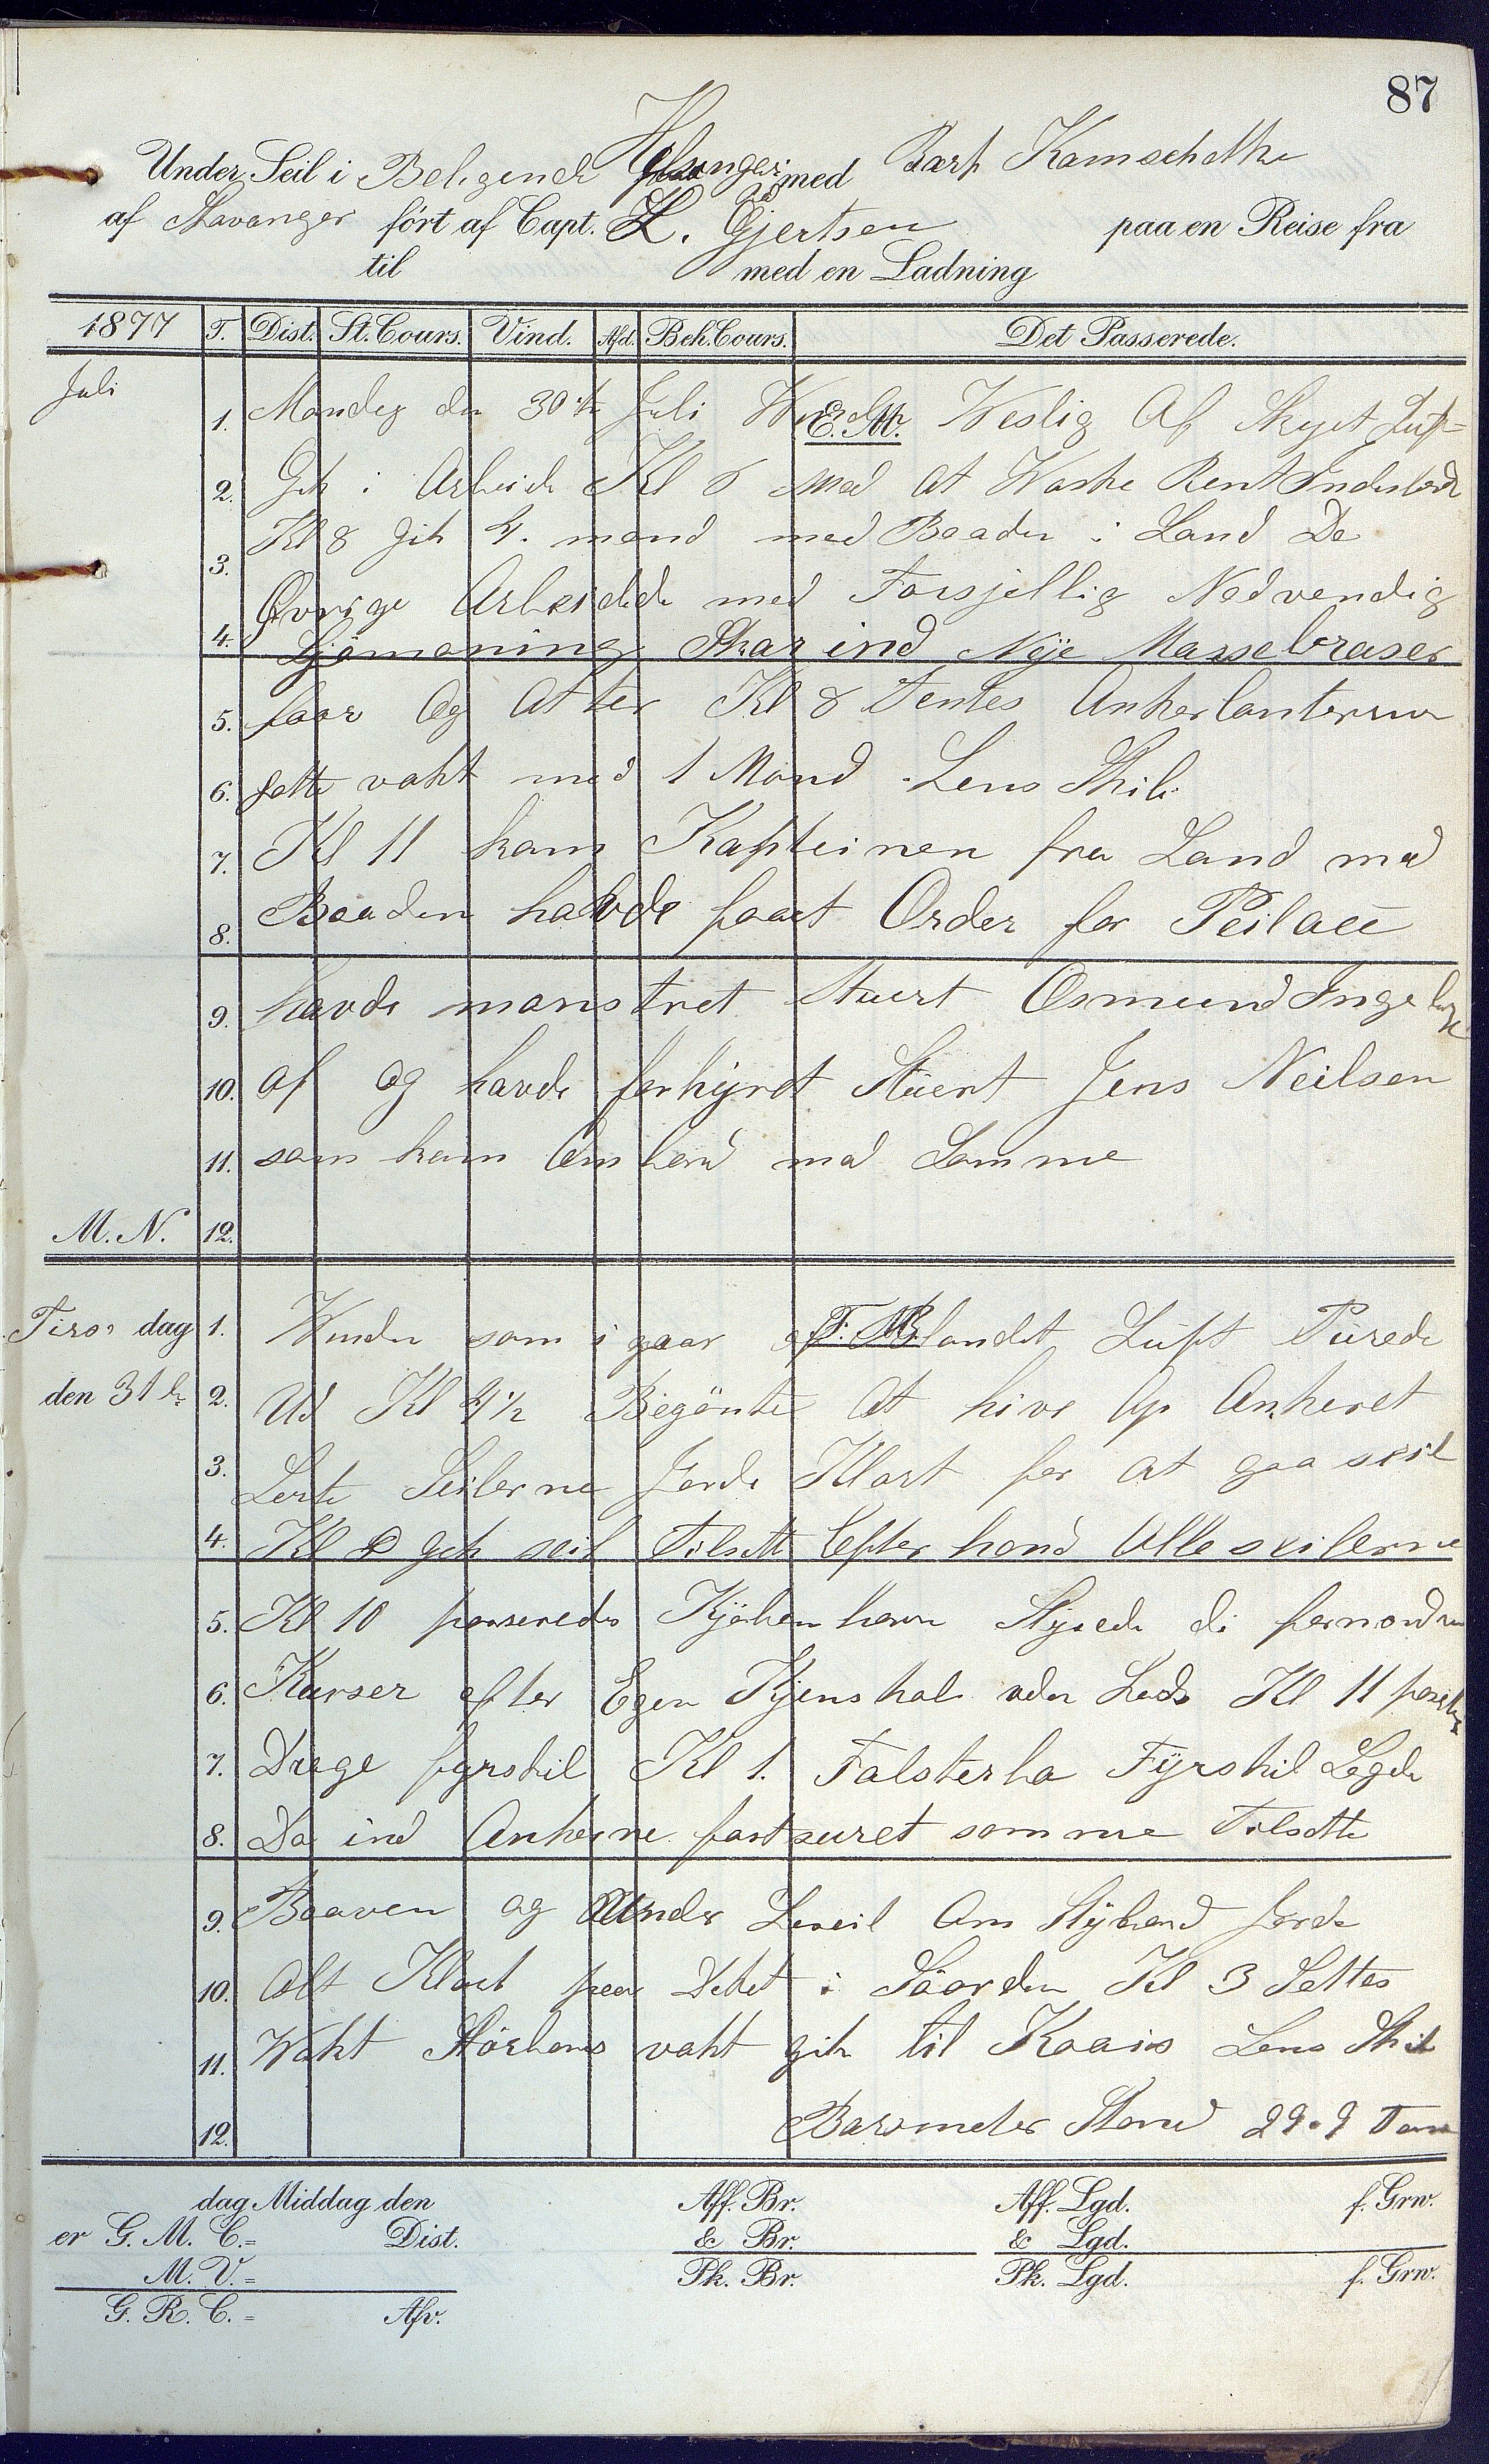 87
Under Seil i Beligende Helsingør med Bark Kamschatka
af Stavanger ført af Capt. L. Gjertsen paa en Reise fra
til med en Ladning
1877 T. Dist. St. Cours. Vind. Afd. Beh. Cours. Det Passerede.
Juli
1. Mandag den 30te Juli E.M. Weslig Af Skyet Luft
2. Gik i Arbeide Kl 6 Med At Waske Rent Indenbords
3. Kl 8 Gik 4. mand med Baaden i Land De
4. Øvrige Arbeidede med Forsjellig Nødvendig
Sjömaning Skar ind Nÿe Massebraser
5. faar Og Atter Kl 8 Tentes Ankerlanterna
6. satte vakt med 1 Mand Lens Skib
7. Kl 11 kam Kapteinen fra Land med
8. Baaden havde faaet Order for Peilaee
9. havde mønstret Stuert Osmund Ingebrg
10. af og havde forhÿret Stuert Jens Neilsen
11. som kam Om bord med Samme
M. N. 12.
Tirsdag 1. Winden som i gaar af F. M. Blandet Luft Purede
den 31te 2. Ud Kl 4½ Begönte At hive Op Ankeret
3. Löste Seilerne Jorde Klart for at gaa seil
4. Kl gik seil Tilsatt Efter hand Alle seilerne
5. Kl 10 passeredes Kjöbenhavn Styrede di fornødne
6. Kurser efter Egen Kjenskab oden Lods Kl 11 paserte
7. Drage fyrskib Kl 1. Falsterbo Fÿrskib Legde
8. Da ind Ankerne fastsuret somme Tilsatte
9. Baaven og Under Leseil Om Stÿbord Jorde
10. Alt Klart paa Dekket i Söorden Kl 3 Settes
11. Wakt Störbords vakt gik til Kaais Lens Skib
12. Barometer Stand 29.9 Tom
dag Middag den Aff. Br. Aff. Lgd. f. Grw.
er G. M. C. = Dist. & Br. & Lgd.
M. V. = Pk. Br. Pk. Lgd. f. Grw.
G. R. C. = Afv.